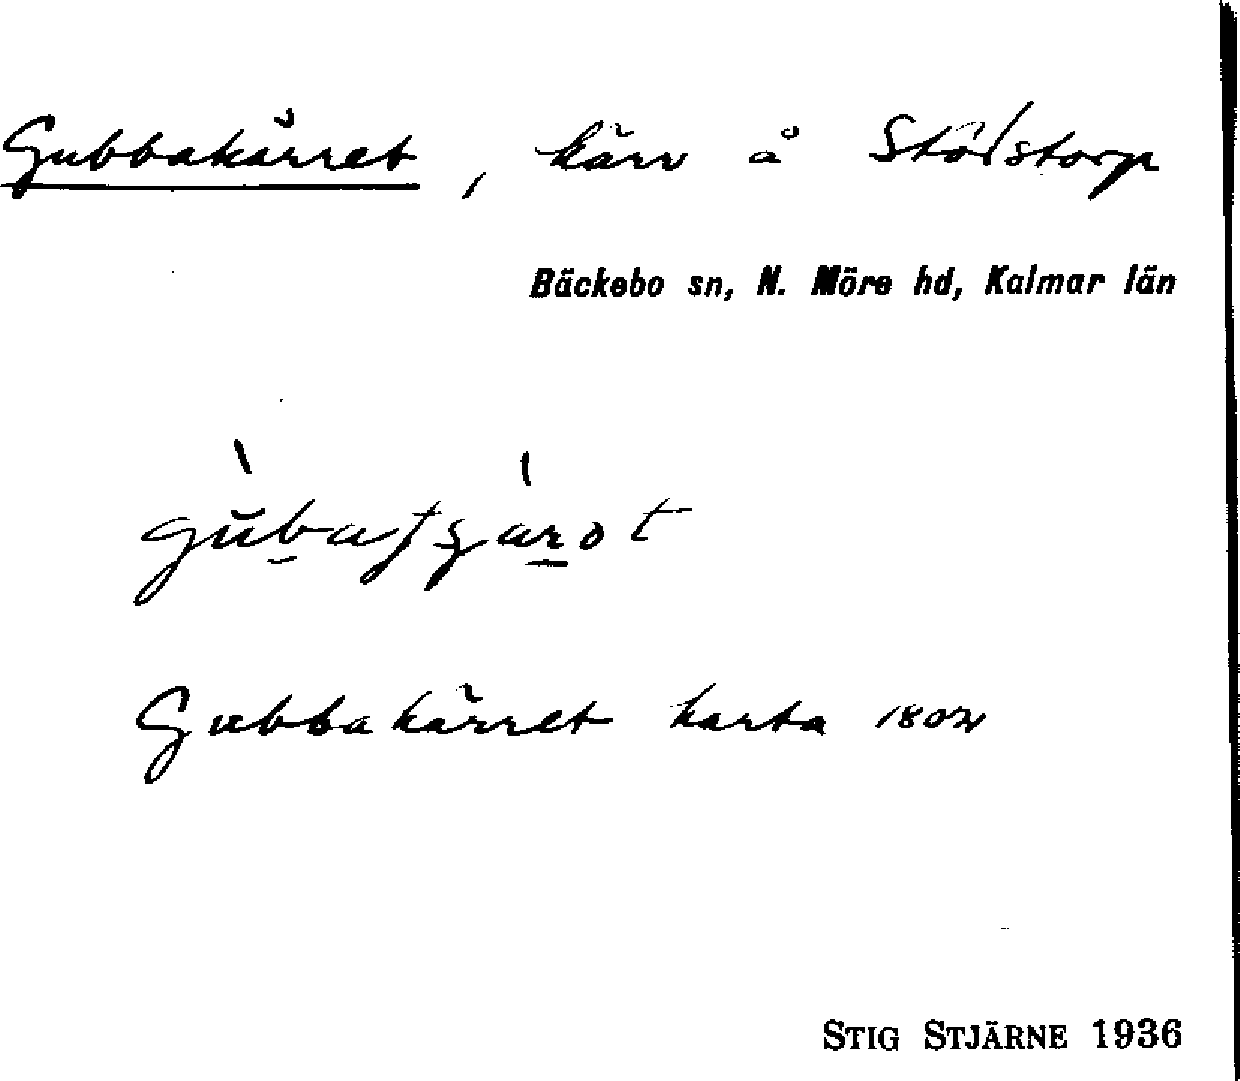 Gubbakärret, kärr å Stödstorp
Bäckebo sn, N. Möre hd, Kalmar län
Gubbakärret karta 1802
STIG STJÄRNE 1936